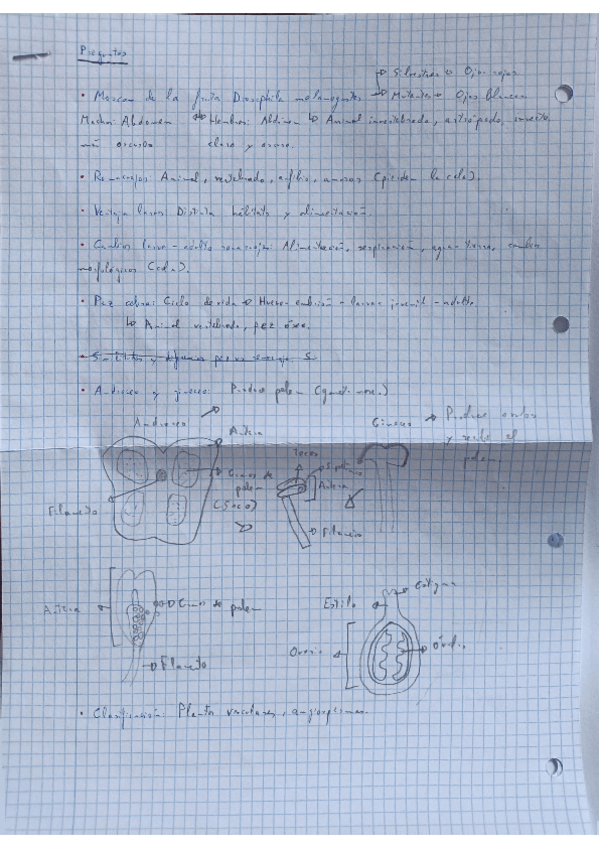 Preguntas
Silvestre → Ojos rojos
• Mosca de la fruta Drosophila melanogaster → Mutante → Ojos blancos
Macho: Abdomen Hembra: Abdomen → Animal invertebrado, artrópodo, insecto
más oscuro claro y
• Renacuajos: Animal, vertebrado, anfibio, anuros (pierden la cola).
• Ventaja larva: Distinto hábitats y alimentación.
• Cambios larva - adulto renacuajo: Alimentación, respiración, agua-tierra, cambios
morfológicos (cola).
• Pez cebra: Ciclo de vida → Huevo - embrión - larva - juvenil - adulto
↳ Animal vertebrado, pez óseo.
• Androceo y gineceo: Produce polen
Androceo
Gineceo → Produce
y recibe el
polen
Antera
Tecas
Granos de
polen
(Saco)
Antera
Filamento
Filamento
Antera
Granos de polen
Filamento
Estilo
Estigma
Ovario
Óvulo
• Clasificación: Plantas vasculares, angiospermas.